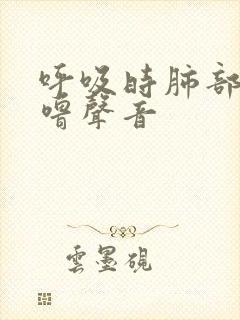 呼吸時肺部
嚕聲音
雲墨硯